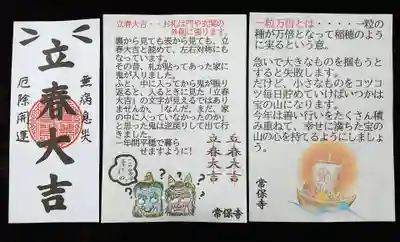 立春大吉
無病息災
厄除開運
立春大吉・・・お札は門や玄関の
外側に張ります。
裏から見ても表から見ても、立春
大吉と読めて、左右対称にもなっ
ています。
その昔、札が貼ってあった家に
鬼が入りました。
ふと、中に入ってから鬼が振り
返ると、入るときに見た「立春
大吉」の文字が見えるではあり
ませんか。「んっ、まだ、家
の中に入っていなかったのか」
と思った鬼は逆戻りして出て行
きました。
一年間平穏で暮ら
せますように！
立春大吉
立春大吉
常保寺
一粒万倍とは・・・・・一粒の
種が万倍となって稲穂のよう
に実るという意。
急いで大きなものを掴もう
とすると失敗します。
だけど、小さなものをコツコ
ツ毎日貯めていけばいつかは
宝の山になります。
今年は善い行いをたくさん積
み重ねて、幸せに満ちた宝の
山の心を持てるようにしましょ
う。
常保寺